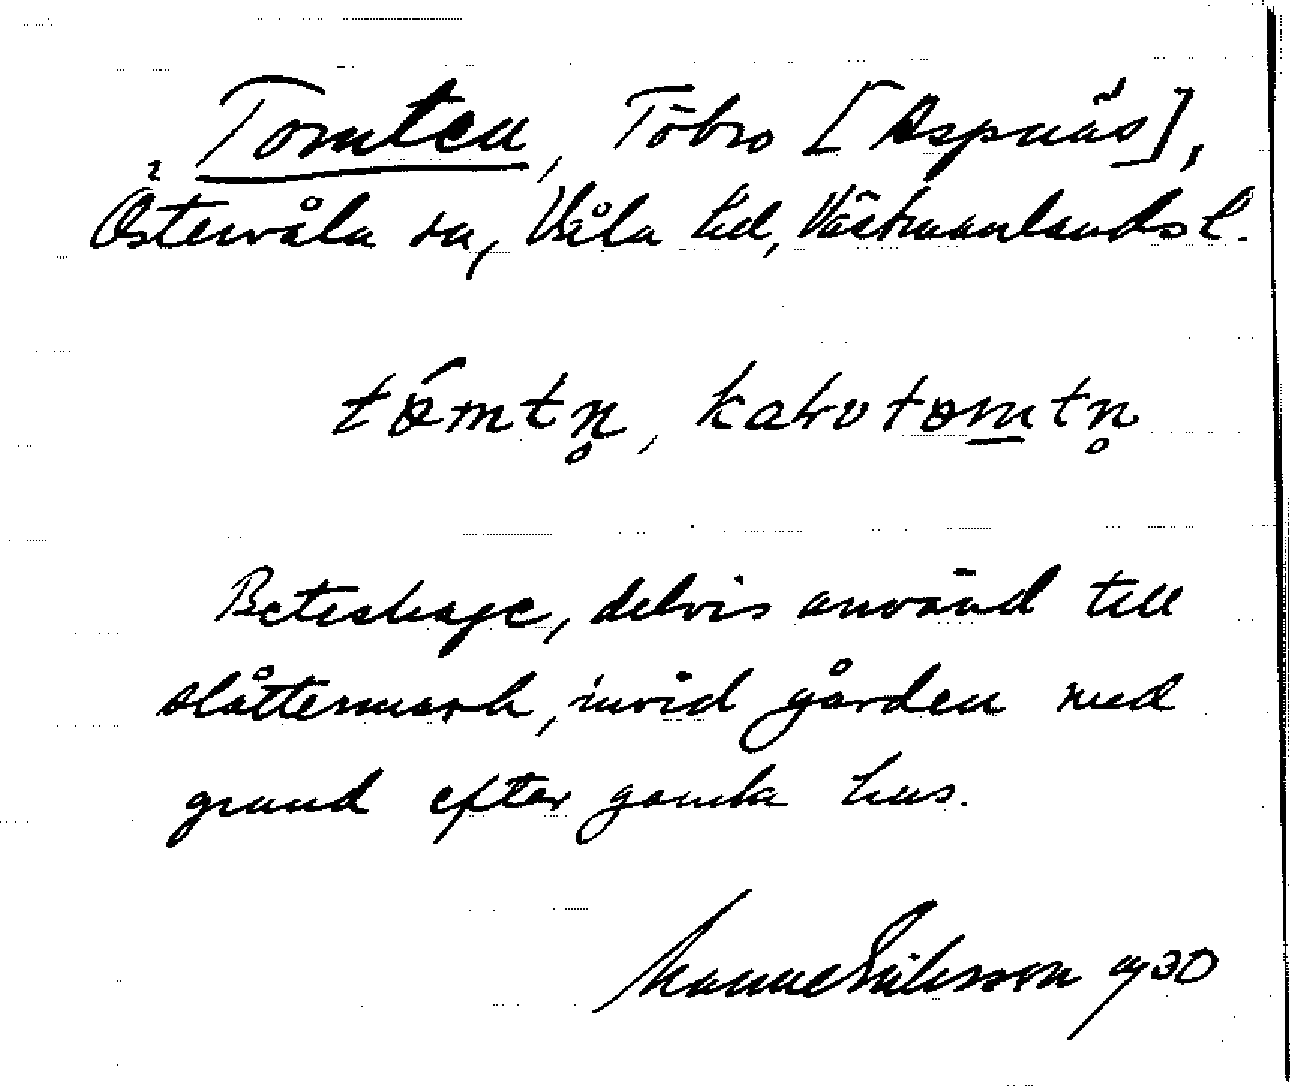 Tomten, Töbro [Aspnäs],
Östervåla sn, Våla hd, Västmanlands l.
tómtn̥, kalvtomtn̥
Beteshage, delvis använd till
slåttermark, invid gården med
grund efter gamla hus.
Manne Eriksson 1930